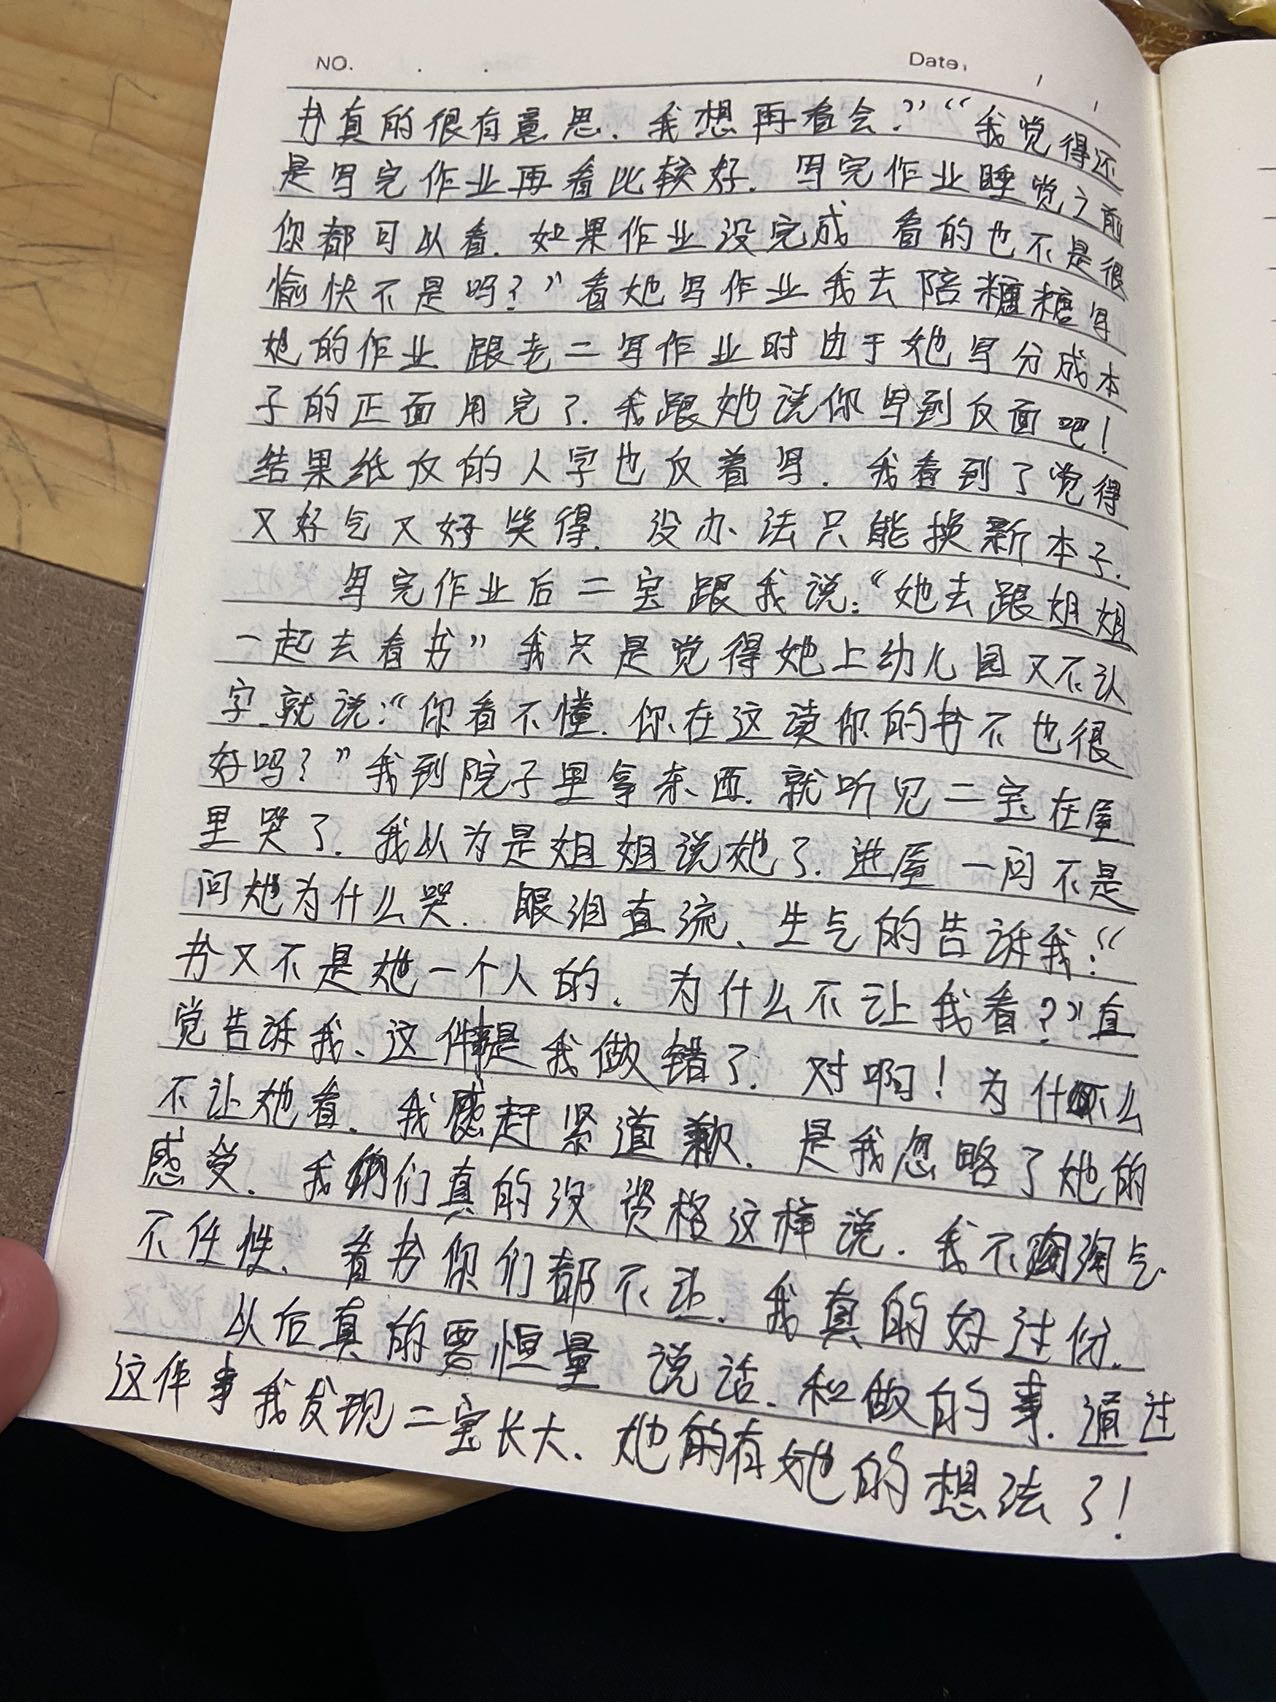 NO.
Date.
书真的很有意思.我想再看会?”“我觉得还
是写完作业再看比较好.写完作业睡觉之前
你都可以看.如果作业没完成 看的也不是很
愉快不是吗?”看她写作业我去陪糖糖写
她的作业 跟老二写作业时由于她写分成本
子的正面用完了.我跟她说你写到反面吧!
结果纸反的人字也反着写.我看到了觉得
又好气又好笑得.没办法只能换新本子.
写完作业后二宝跟我说:“她去跟姐姐
一起去看书”我只是觉得她上幼儿园又不认
字.就说:“你看不懂.你在这读你的书不也很
好吗?”我到院子里拿东西.就听见二宝在屋
里哭了.我以为是姐姐说她了.进屋一问不是
问她为什么哭..眼泪直流、生气的告诉我:“
书又不是她一个人的.为什么不让我看?”直
觉告诉我、这件事是我做错了.对啊!为什么
不让她看.我赶紧道歉.是我忽略了她的
感受.我们真的没资格这样说.我不淘气
不任性、看书你们都不让.我真的好过份.
以后真的要恒量说话.和做的事.通过
这件事我发现二宝长大.她的有她的想法了!